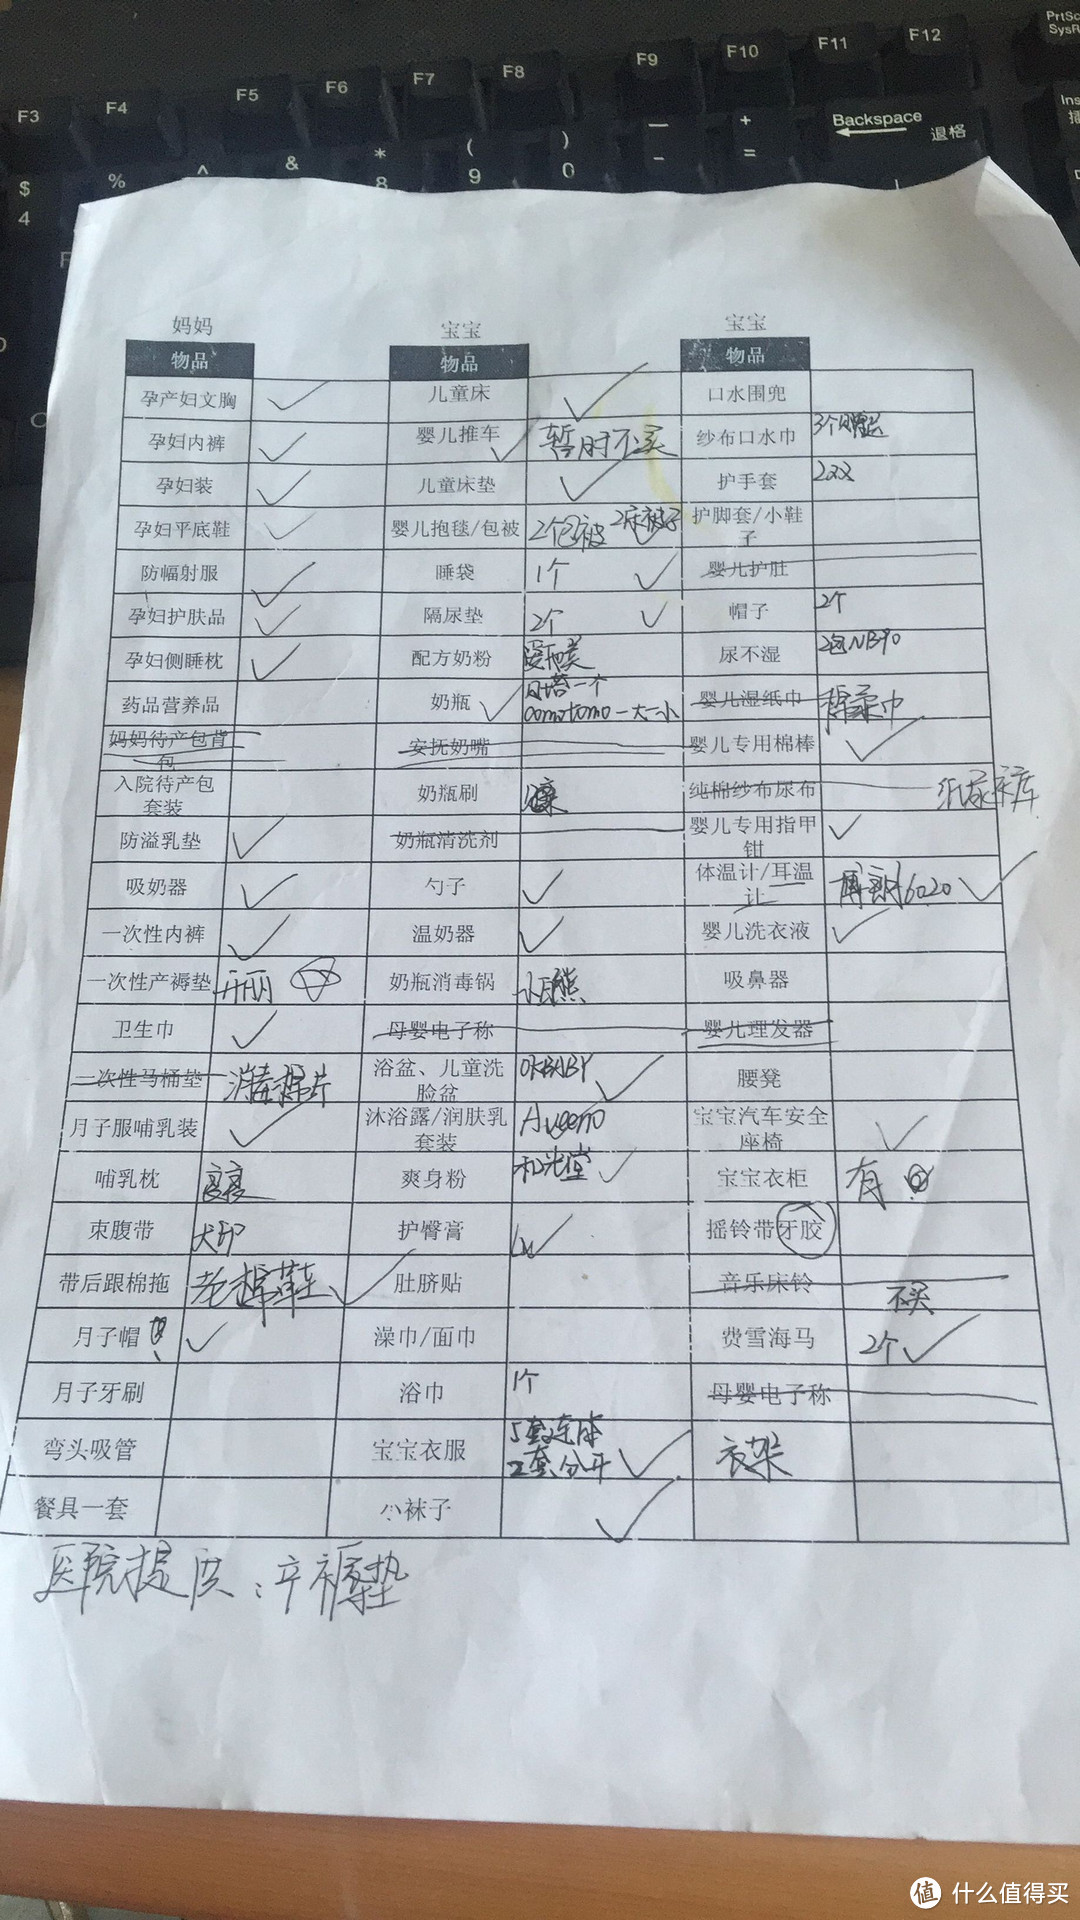 F3 F4 F5 F6 F7 F8 F9 F10 F11 F12 PrtSc
SysR
$ % ^ & * ( ) — + Backspace Ins
4 8 9 0 - = 退格
妈妈 宝宝 宝宝
物品 物品 物品
孕产妇文胸 儿童床 口水围兜
孕妇内裤 婴儿推车 暂时不买 纱布口水巾 3个
孕妇装 儿童床垫 护手套 2双
孕妇平底鞋 婴儿抱毯/包被 2个包被 2床被子 护脚套/小鞋子
防幅射服 睡袋 1个 婴儿护肚
孕妇护肤品 隔尿垫 2个 帽子 2个
孕妇侧睡枕 配方奶粉 爱他美 尿不湿 2包NB90
药品营养品 奶瓶 贝塔一个 comotomo一大一小 婴儿湿纸巾 棉柔巾
妈妈待产包背包 安抚奶嘴 婴儿专用棉棒
入院待产包套装 奶瓶刷 贝亲 纯棉纱布尿布 纸尿裤库
防溢乳垫 奶瓶清洗剂 婴儿专用指甲钳
吸奶器 勺子 体温计/耳温计 博朗6020
一次性内裤 温奶器 婴儿洗衣液
一次性产褥垫 开丽 奶瓶消毒锅 小白熊 吸鼻器
卫生巾 母婴电子称 婴儿理发器
一次性马桶垫 消毒棉片 浴盆、儿童洗脸盆 OKBABY 腰凳
月子服哺乳装 沐浴露/润肤乳套装 Aveeno 宝宝汽车安全座椅
哺乳枕 爽身粉 和光堂 宝宝衣柜 有
束腹带 犬印 护臀膏 摇铃带牙胶
带后跟棉拖 肚脐贴 音乐床铃 不买
月子帽 澡巾/面巾 费雪海马 2个
月子牙刷 浴巾 1个 母婴电子称
弯头吸管 宝宝衣服 5套连体 2套分开 衣架
餐具一套 小袜子
医院提供：产褥垫
值 什么值得买